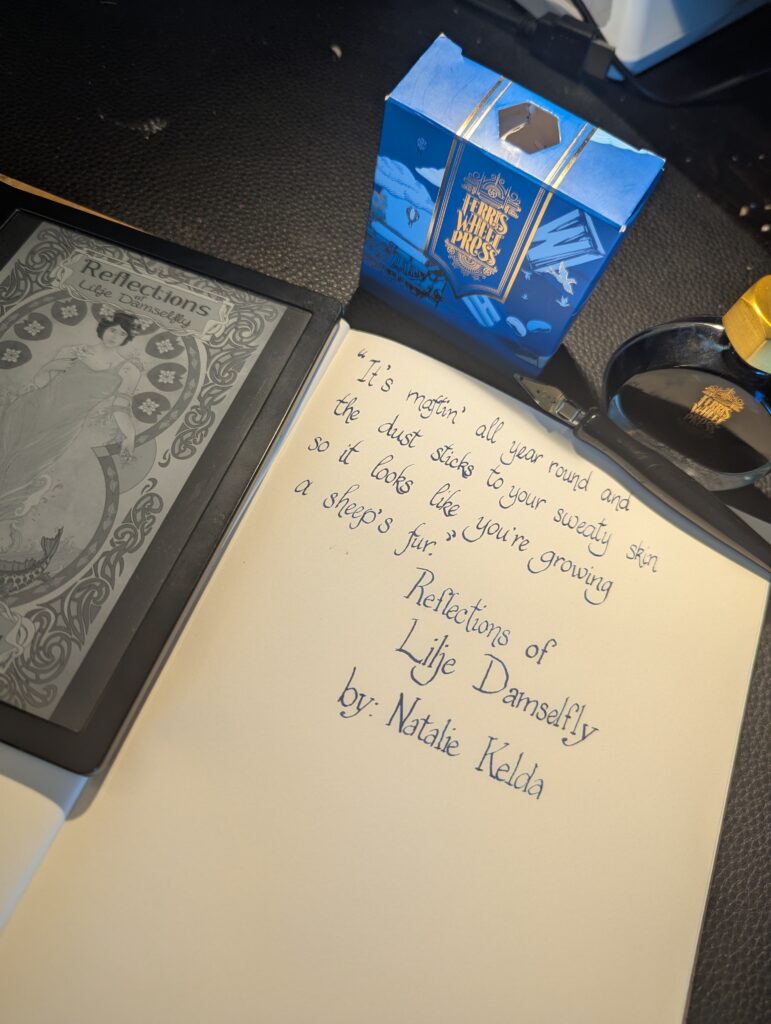 Reflections
of
Lilje Damselfly
FERRIS
WHEEL
PRESS
W
FERRIS
WHEEL
PRESS
"It's maftin' all year round and
the dust sticks to your sweaty skin
so it looks like you're growing
a sheep's fur."
Reflections of
Lilje Damselfly
by: Natalie Kelda